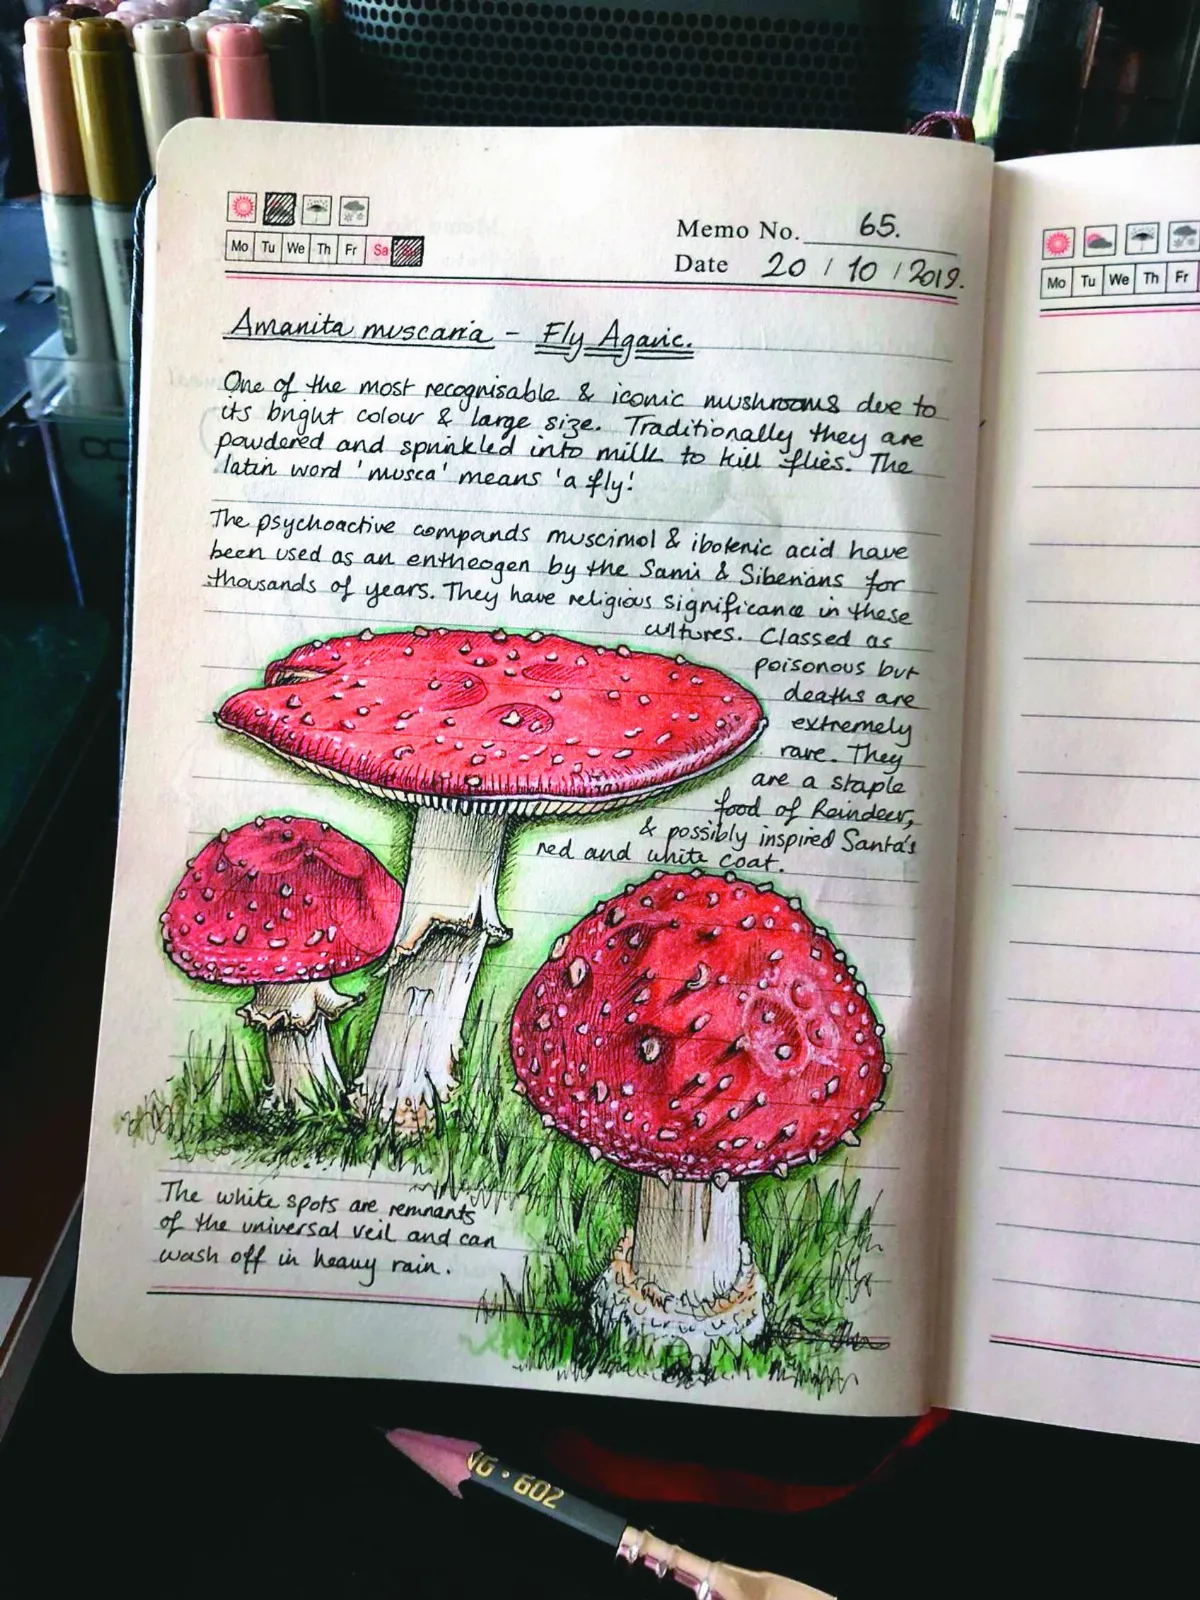 Memo No. 65.
Mo Tu We Th Fr Sa
Date 20 / 10 / 2019.
Mo Tu We Th Fr
Amanita muscaria - Fly Agaric.
One of the most recognisable & iconic mushrooms due to
its bright colour & large size. Traditionally they are
powdered and sprinkled into milk to kill flies. The
latin word 'musca' means 'a fly!
The psychoactive compounds muscimol & ibotenic acid have
been used as an entheogen by the Sami & Siberians for
thousands of years. They have religious significance in these
cultures. Classed as
poisonous but
deaths are
extremely
rare. They
are a staple
food of Reindeer,
& possibly inspired Santa's
red and white coat.
The white spots are remnants
of the universal veil and can
wash off in heavy rain.
NG · 602